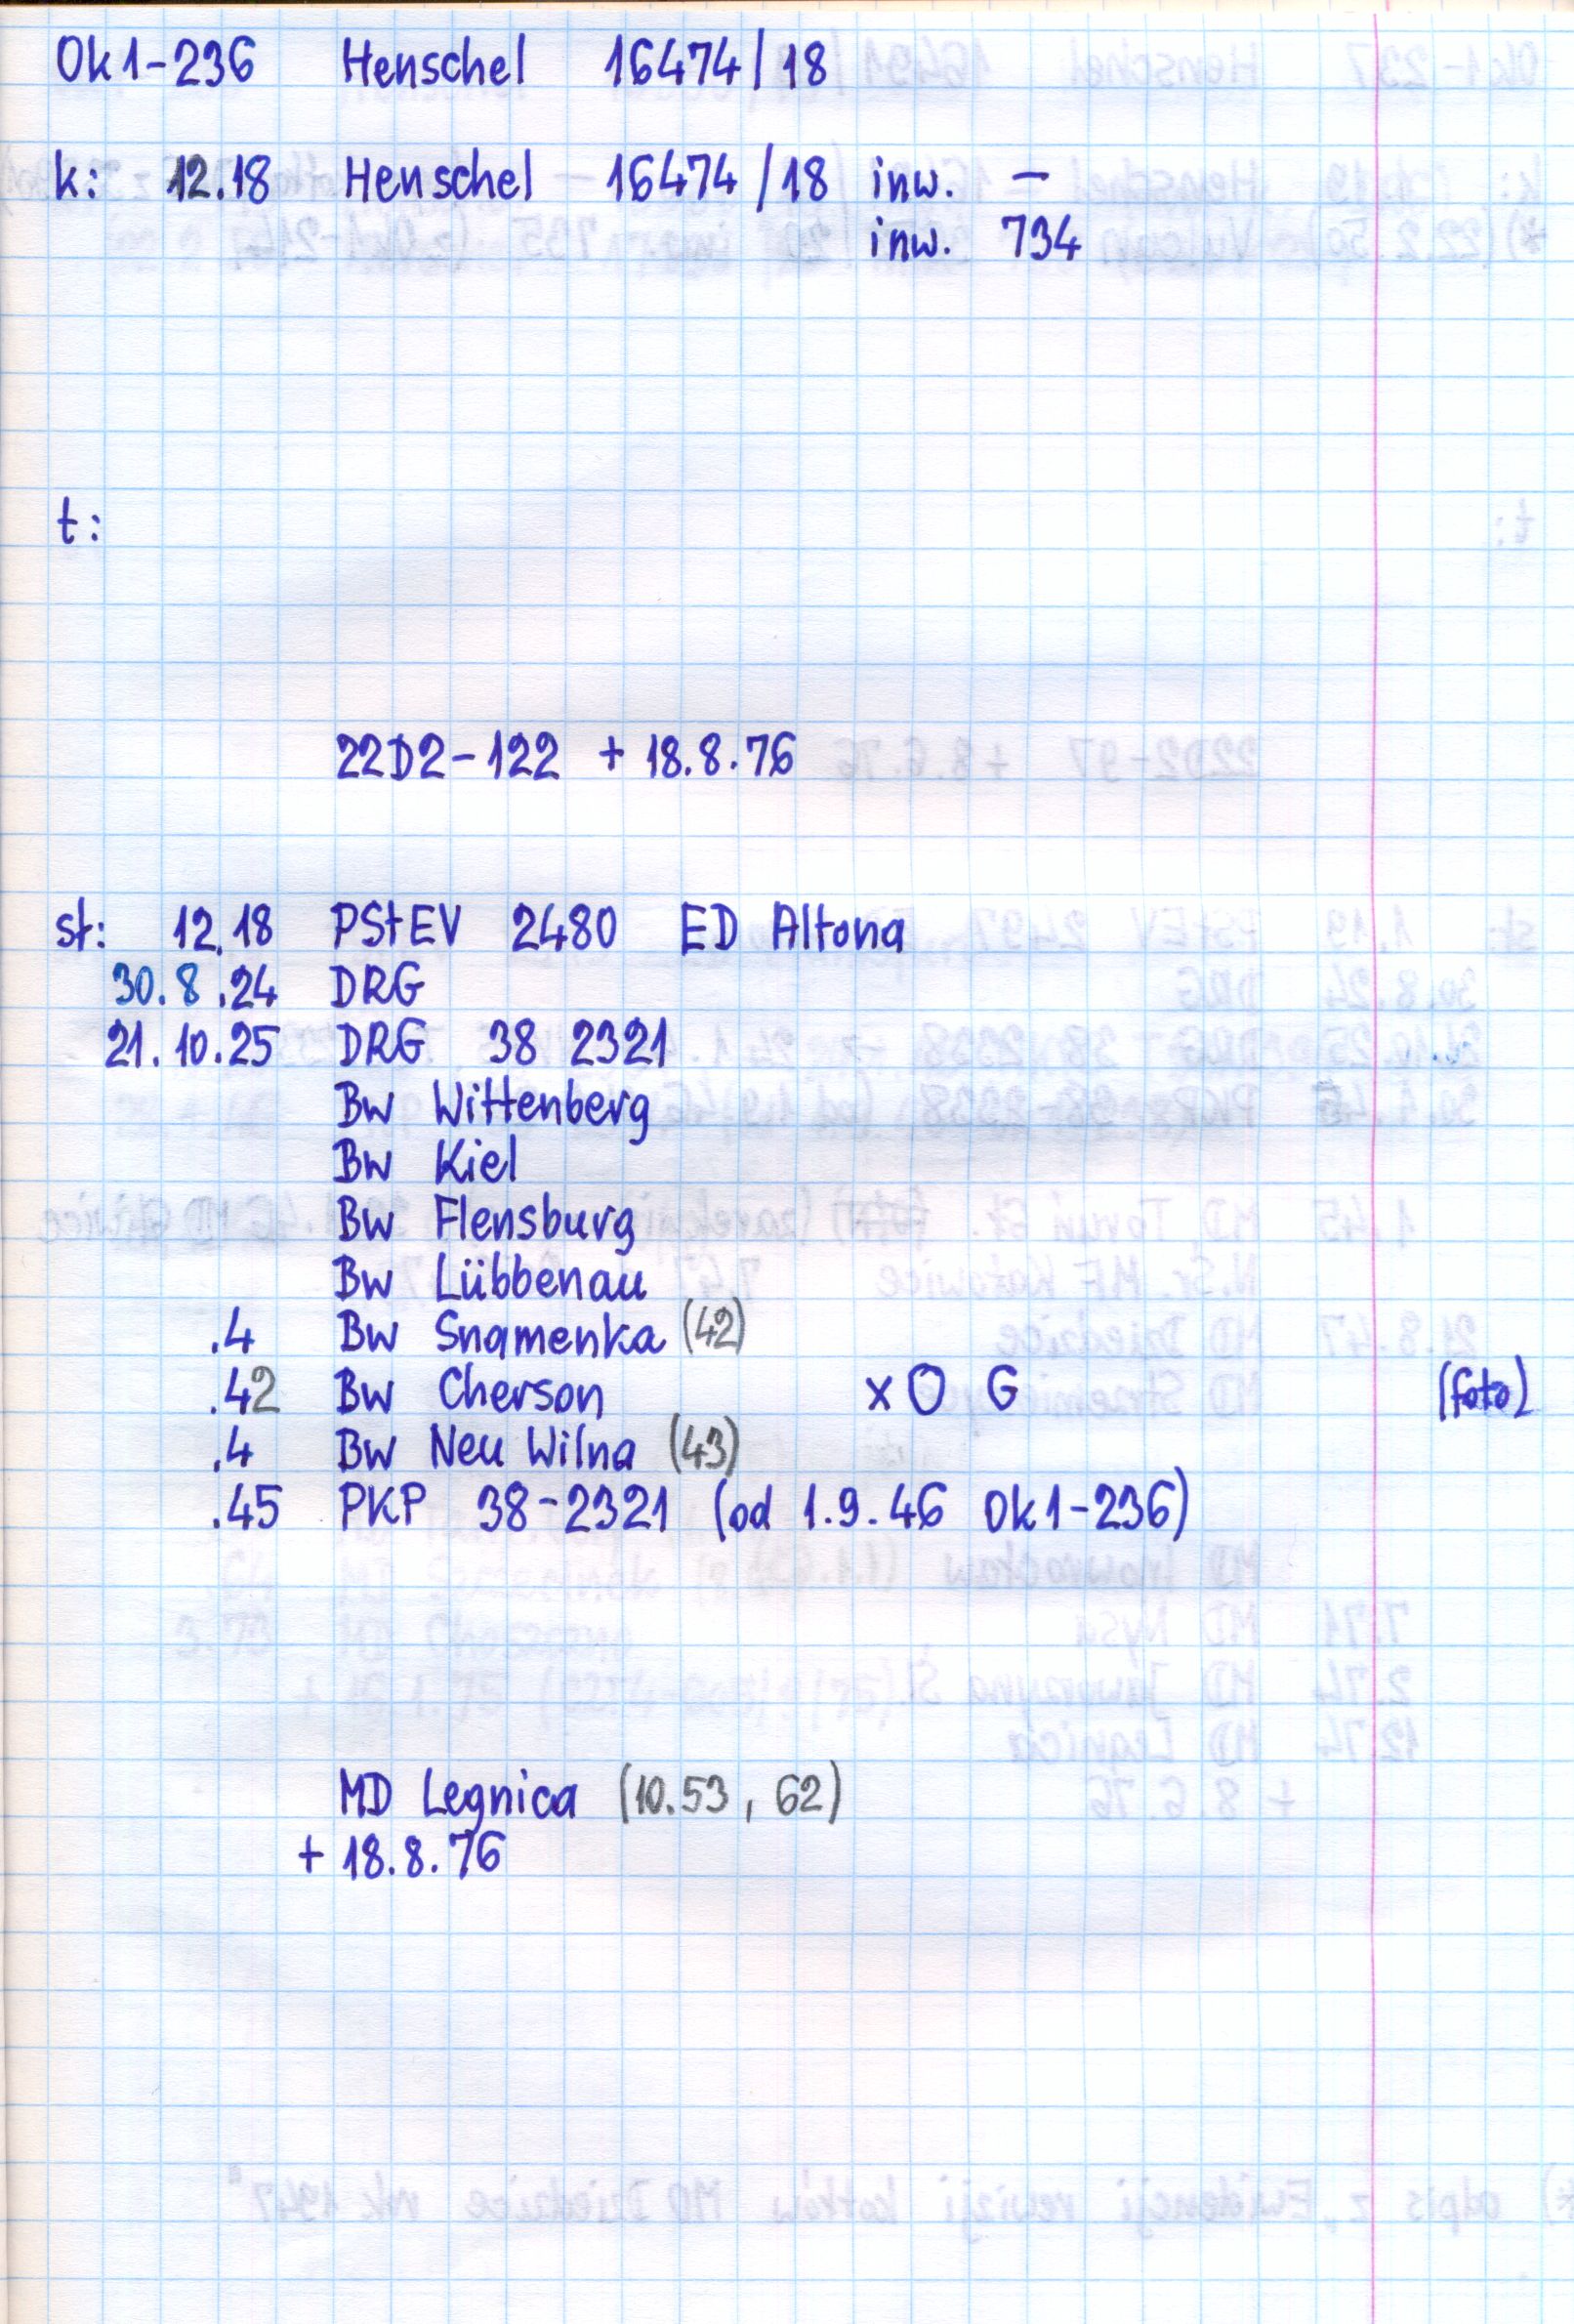 Ok1-236 Henschel 16474/18
k: 12.18 Henschel 16474/18 inw. –
inw. 734
t:
22D2-122 + 18.8.76
st: 12.18 PStEV 2480 ED Altona
30.8.24 DRG
21.10.25 DRG 38 2321
Bw Wittenberg
Bw Kiel
Bw Flensburg
Bw Lübbenau
.4 Bw Snamenka (42)
.42 Bw Cherson x O G (foto)
.4 Bw Neu Wilna (43)
.45 PKP 38-2321 (od 1.9.46 Ok1-236)
MD Legnica (10.53, 62)
+ 18.8.76